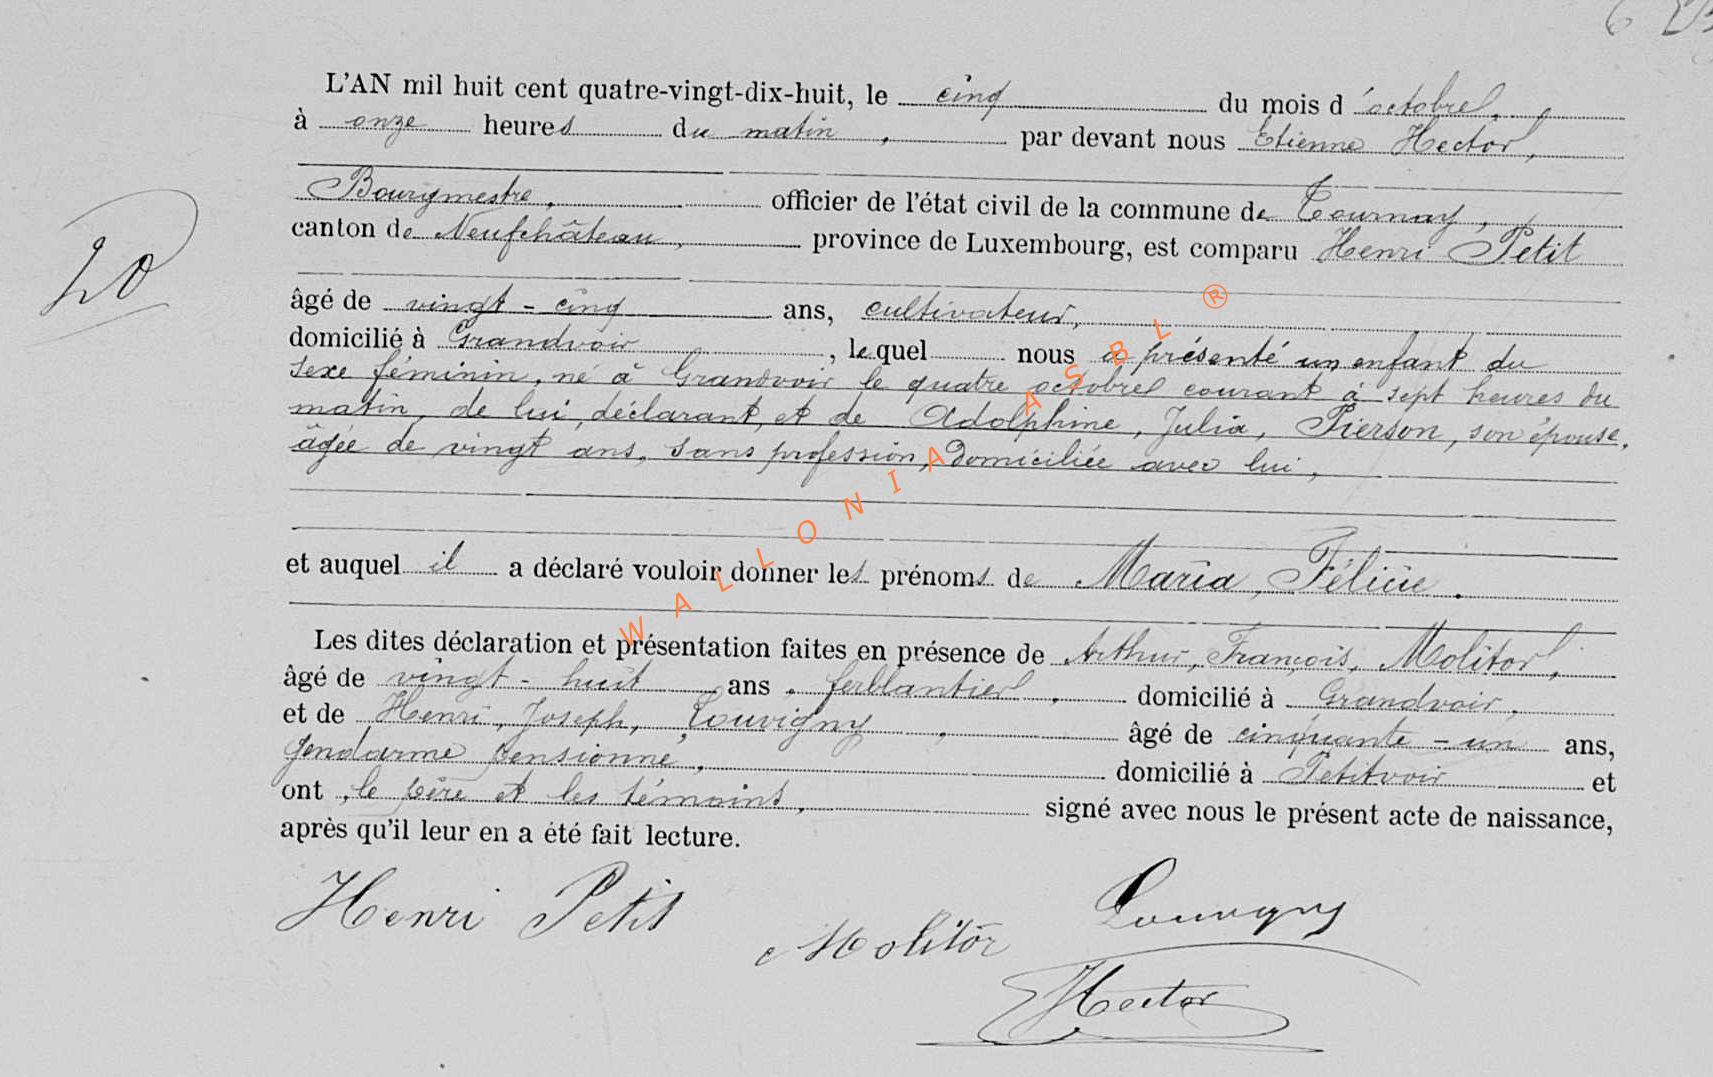 L'AN mil huit cent quatre-vingt-dix-huit, le cinq du mois d'octobre,
à onze heures du matin, par devant nous Etienne Hector,
Bourgmestre, officier de l'état civil de la commune de Tournay,
canton de Neufchâteau, province de Luxembourg, est comparu Henri Petit
âgé de vingt-cinq ans, cultivateur,
domicilié à Grandvoir, lequel nous a présenté un enfant du
sexe féminin, né à Grandvoir le quatre octobre courant à sept heures du
matin, de lui, déclarant, et de Adolphine, Julia, Pierson, son épouse,
âgée de vingt ans, sans profession, domiciliée avec lui,
et auquel il a déclaré vouloir donner les prénoms de Maria, Félicie.
Les dites déclaration et présentation faites en présence de Arthur, François, Molitor,
âgé de vingt-huit ans, ferblantier, domicilié à Grandvoir,
et de Henri, Joseph, Louvigny, âgé de cinquante-un ans,
gendarme pensionné, domicilié à Petitvoir et
ont, le père et les témoins, signé avec nous le présent acte de naissance,
après qu'il leur en a été fait lecture.
Henri Petit
Molitor
Louvigny
Hector
20
WALLONIA ASBL ®